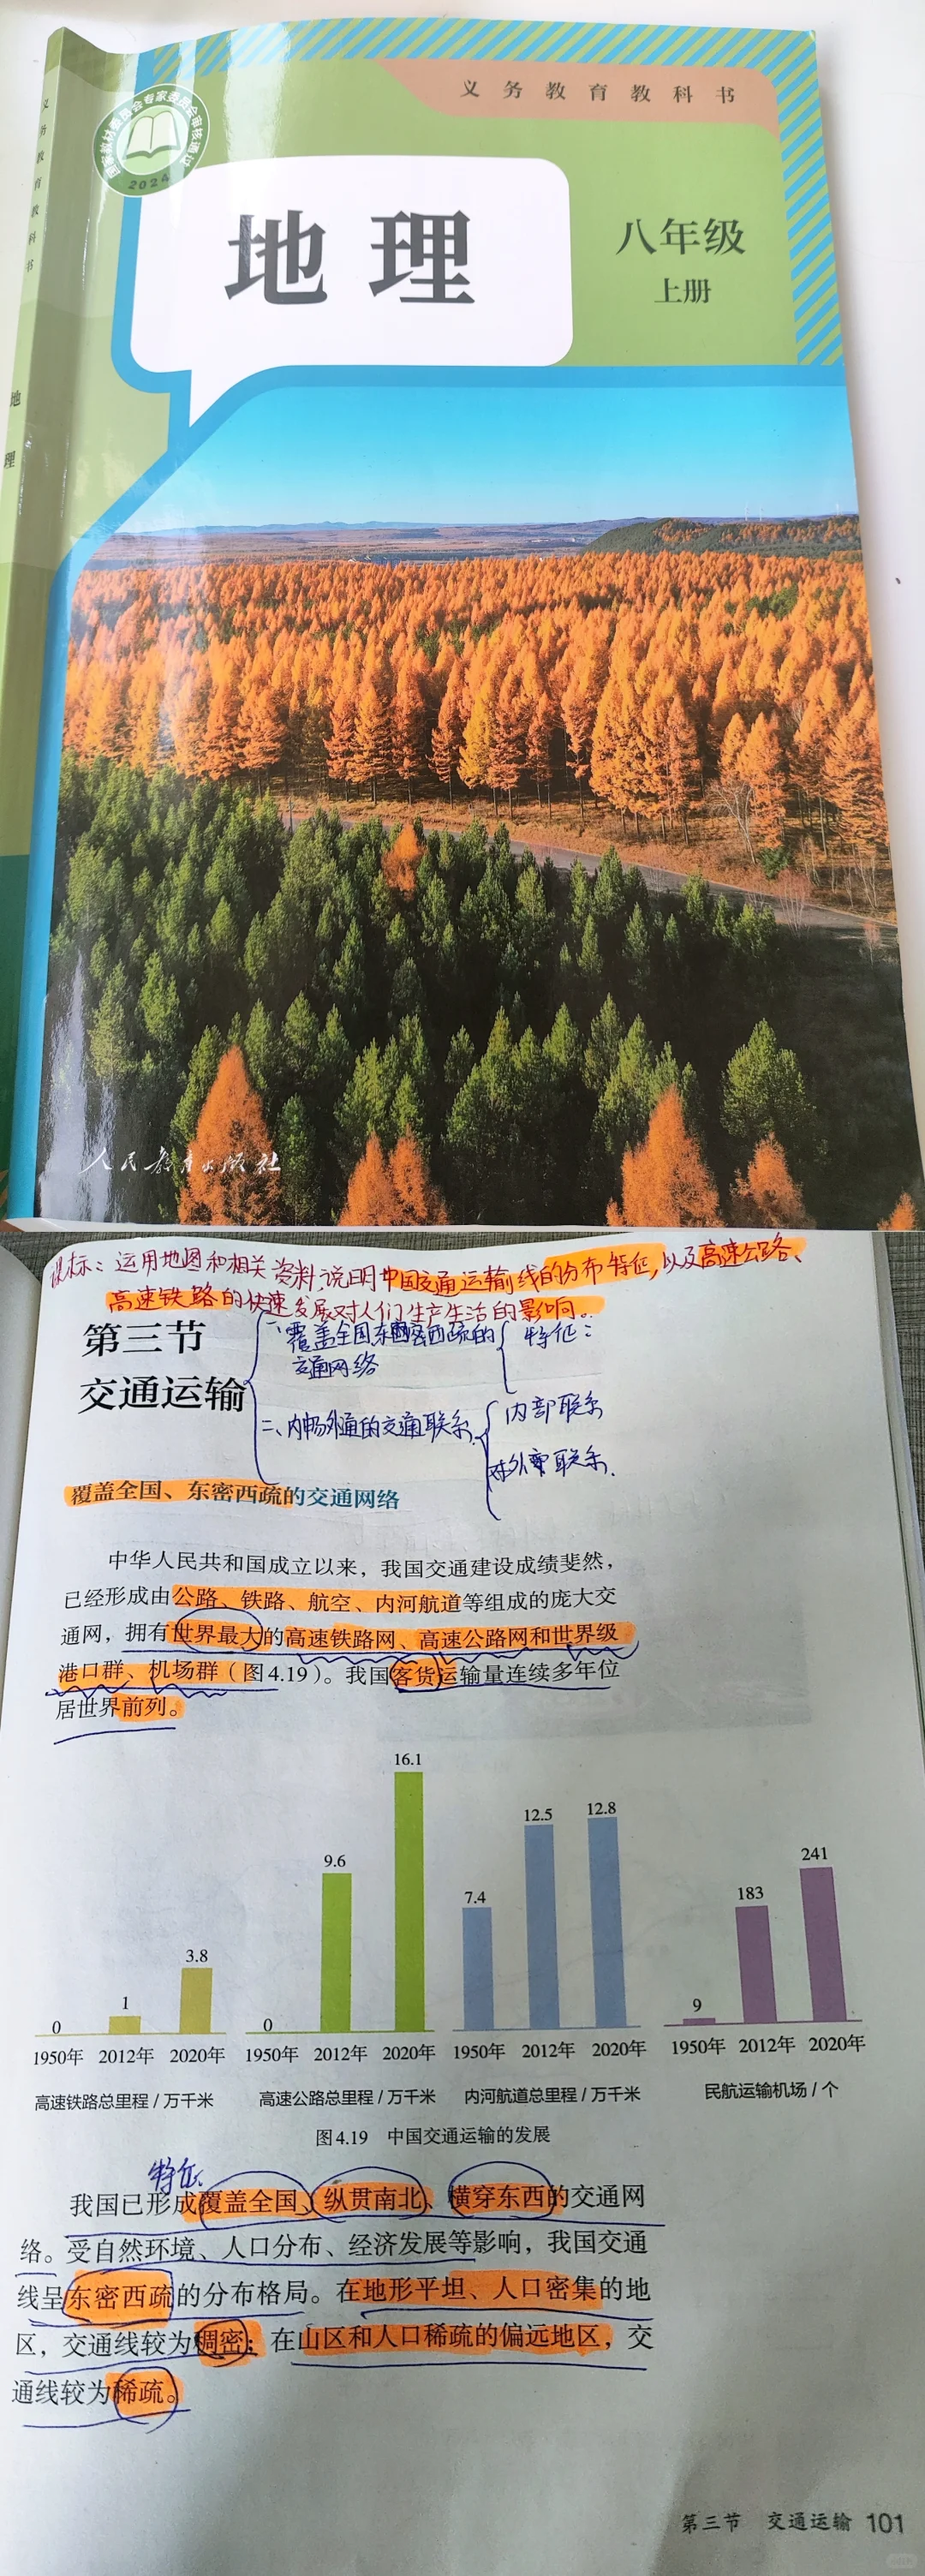 义务教育教科书
国家教材委员会专家委员会审核通过
2024
义务教育教科书
地理
八年级
上册
地理
人民教育出版社
课标：运用地图和相关资料，说明中国交通运输线的分布特征，以及高速公路、
高速铁路的快速发展对人们生产生活的影响。
第三节
交通运输
一、覆盖全国东密西疏的
交通网络
特征：
二、内畅外通的交通联系
内部联系
对外联系.
覆盖全国、东密西疏的交通网络
中华人民共和国成立以来，我国交通建设成绩斐然，
已经形成由公路、铁路、航空、内河航道等组成的庞大交
通网，拥有世界最大的高速铁路网、高速公路网和世界级
港口群、机场群（图4.19）。我国客货运输量连续多年位
居世界前列。
0
1
3.8
1950年 2012年 2020年
高速铁路总里程 / 万千米
0
9.6
16.1
1950年 2012年 2020年
高速公路总里程 / 万千米
7.4
12.5
12.8
1950年 2012年 2020年
内河航道总里程 / 万千米
9
183
241
1950年 2012年 2020年
民航运输机场 / 个
图4.19 中国交通运输的发展
特征
我国已形成覆盖全国、纵贯南北、横穿东西的交通网
络。受自然环境、人口分布、经济发展等影响，我国交通
线呈东密西疏的分布格局。在地形平坦、人口密集的地
区，交通线较为稠密；在山区和人口稀疏的偏远地区，交
通线较为稀疏。
第三节 交通运输 101